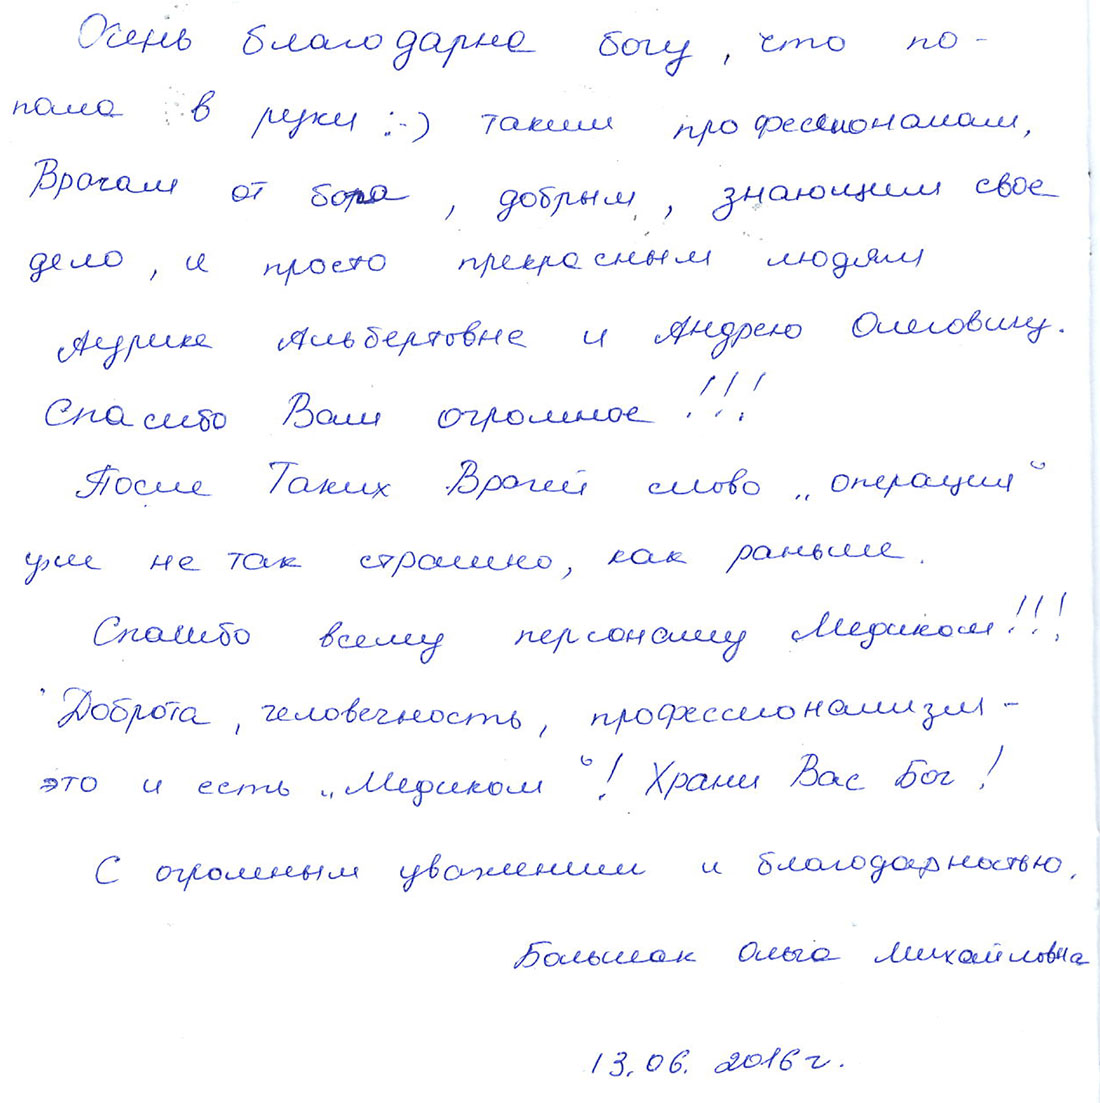 Очень благодарна богу, что по-
пала в руки :-) таким профессионалам,
Врачам от бога, добрым, знающим свое
дело, и просто прекрасным людям
Аурике Альбертовне и Андрею Олеговичу.
Спасибо Вам огромное!!!
После Таких Врачей слово „операция“
уже не так страшно, как раньше.
Спасибо всему персоналу Медиком!!!
Доброта, человечность, профессионализм -
это и есть „Медиком“! Храни Вас Бог!
С огромным уважением и благодарностью,
Большак Ольга Михайловна
13.06.2016г.